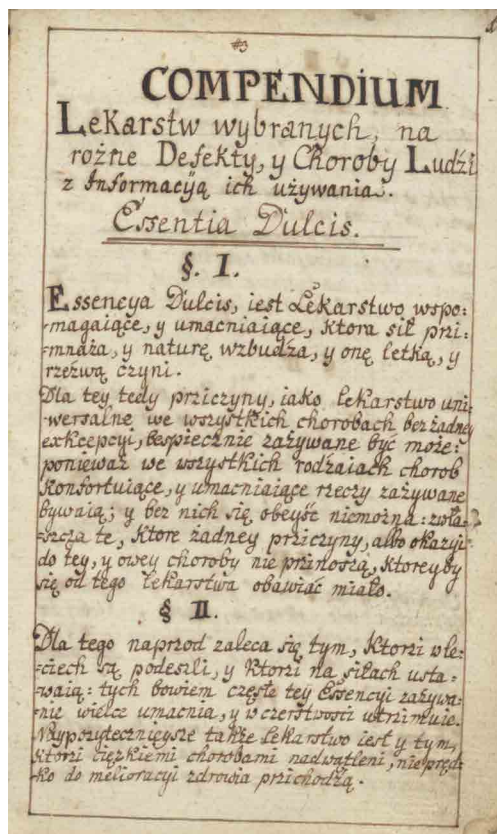 #3
COMPENDIUM
Lekarstw wybranych, na
rożne Defekty, y Choroby Ludźi
z Informacyją ich używania.
Essentia Dulcis.
§. I.
Essencya Dulcis, iest Lekarstwo wspo:
-magaiące, y umacniaiące, ktora sił przi:
-mnaża, y naturę wzbudza, y onę letką, y
rzeźwą czyni.
Dla tey tedy prziczyny, iako lekarstwo uni:
-wersalne we wszystkich chorobach bez żadney
exkcepcyi, bespiecznie zażywane być może:
ponieważ we wszystkich rodzaiach chorob
konfortuiące, y umacniaiące rzeczy zażywane
bywaią; y bez nich się obeyść niemożna: zwła-
-szcza te, ktore żadney prziczyny, albo okazyi
do tey, y owey choroby nie prźinoszą, ktoreyby
się od tego lekarstwa obawiać miało.
§ II.
Dla tego naprzod zaleca się tym, ktorzi w le:
-ciech są podeszli, y ktorzi na siłach usta-
-waią: tych bowiem częste tey Essencyi zażywa-
-nie wielce umacnia, y w czerstwości utrzimuie.
Naypożytecznieysze także lekarstwo iest y tym,
ktorzi ciężkiemi chorobami nadwątleni, nie pręd-
-ko do melioracyi zdrowia prźichodzą.